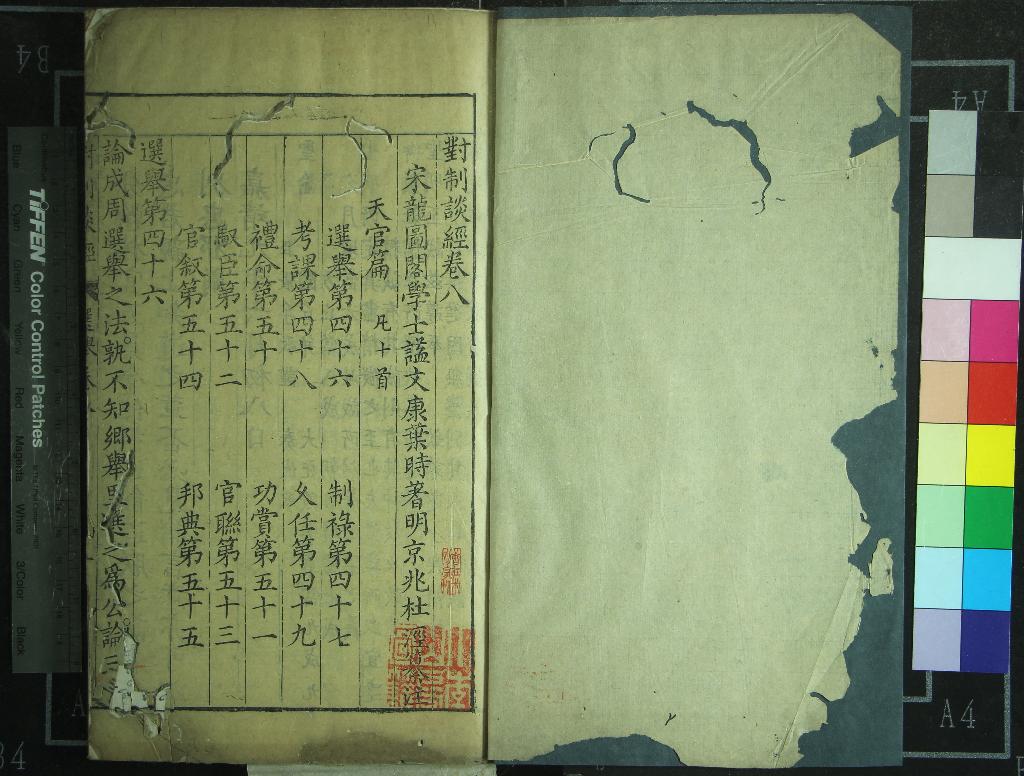 對制談經卷八
宋龍圖閣學士謚文康葉時著明京兆杜涇
天官篇 凡十首
選舉第四十六 制祿第四十七
考課第四十八 久任第四十九
禮命第五十 功賞第五十一
馭臣第五十二 官聯第五十三
官敘第五十四 邦典第五十五
選舉第四十六
論成周選舉之法孰不知鄉舉里進之爲公論
TIFFEN Color Control Patches
Blue
Cyan
Green
Yellow
Red
Magenta
White
3/Color
Black
B4
A4
A4